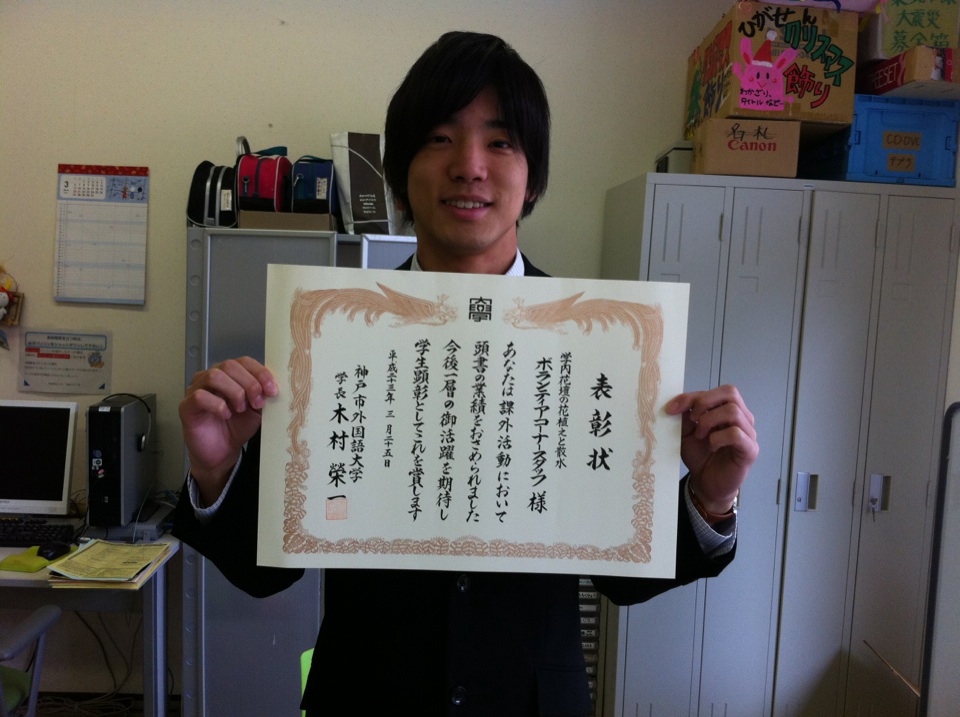 表彰状
学内花壇の花植えと散水
ボランティアコーナースタッフ様
あなたは課外活動において
頭書の業績をおさめられました
今後一層の御活躍を期待し
学生顕彰としてこれを賞します
平成二十三年三月二十五日
神戸市外国語大学
学長 木村榮一
ひがせん
クリスマス
飾り
わかざり、
タイトルなど
名札
Canon
大震災
募金箱
3